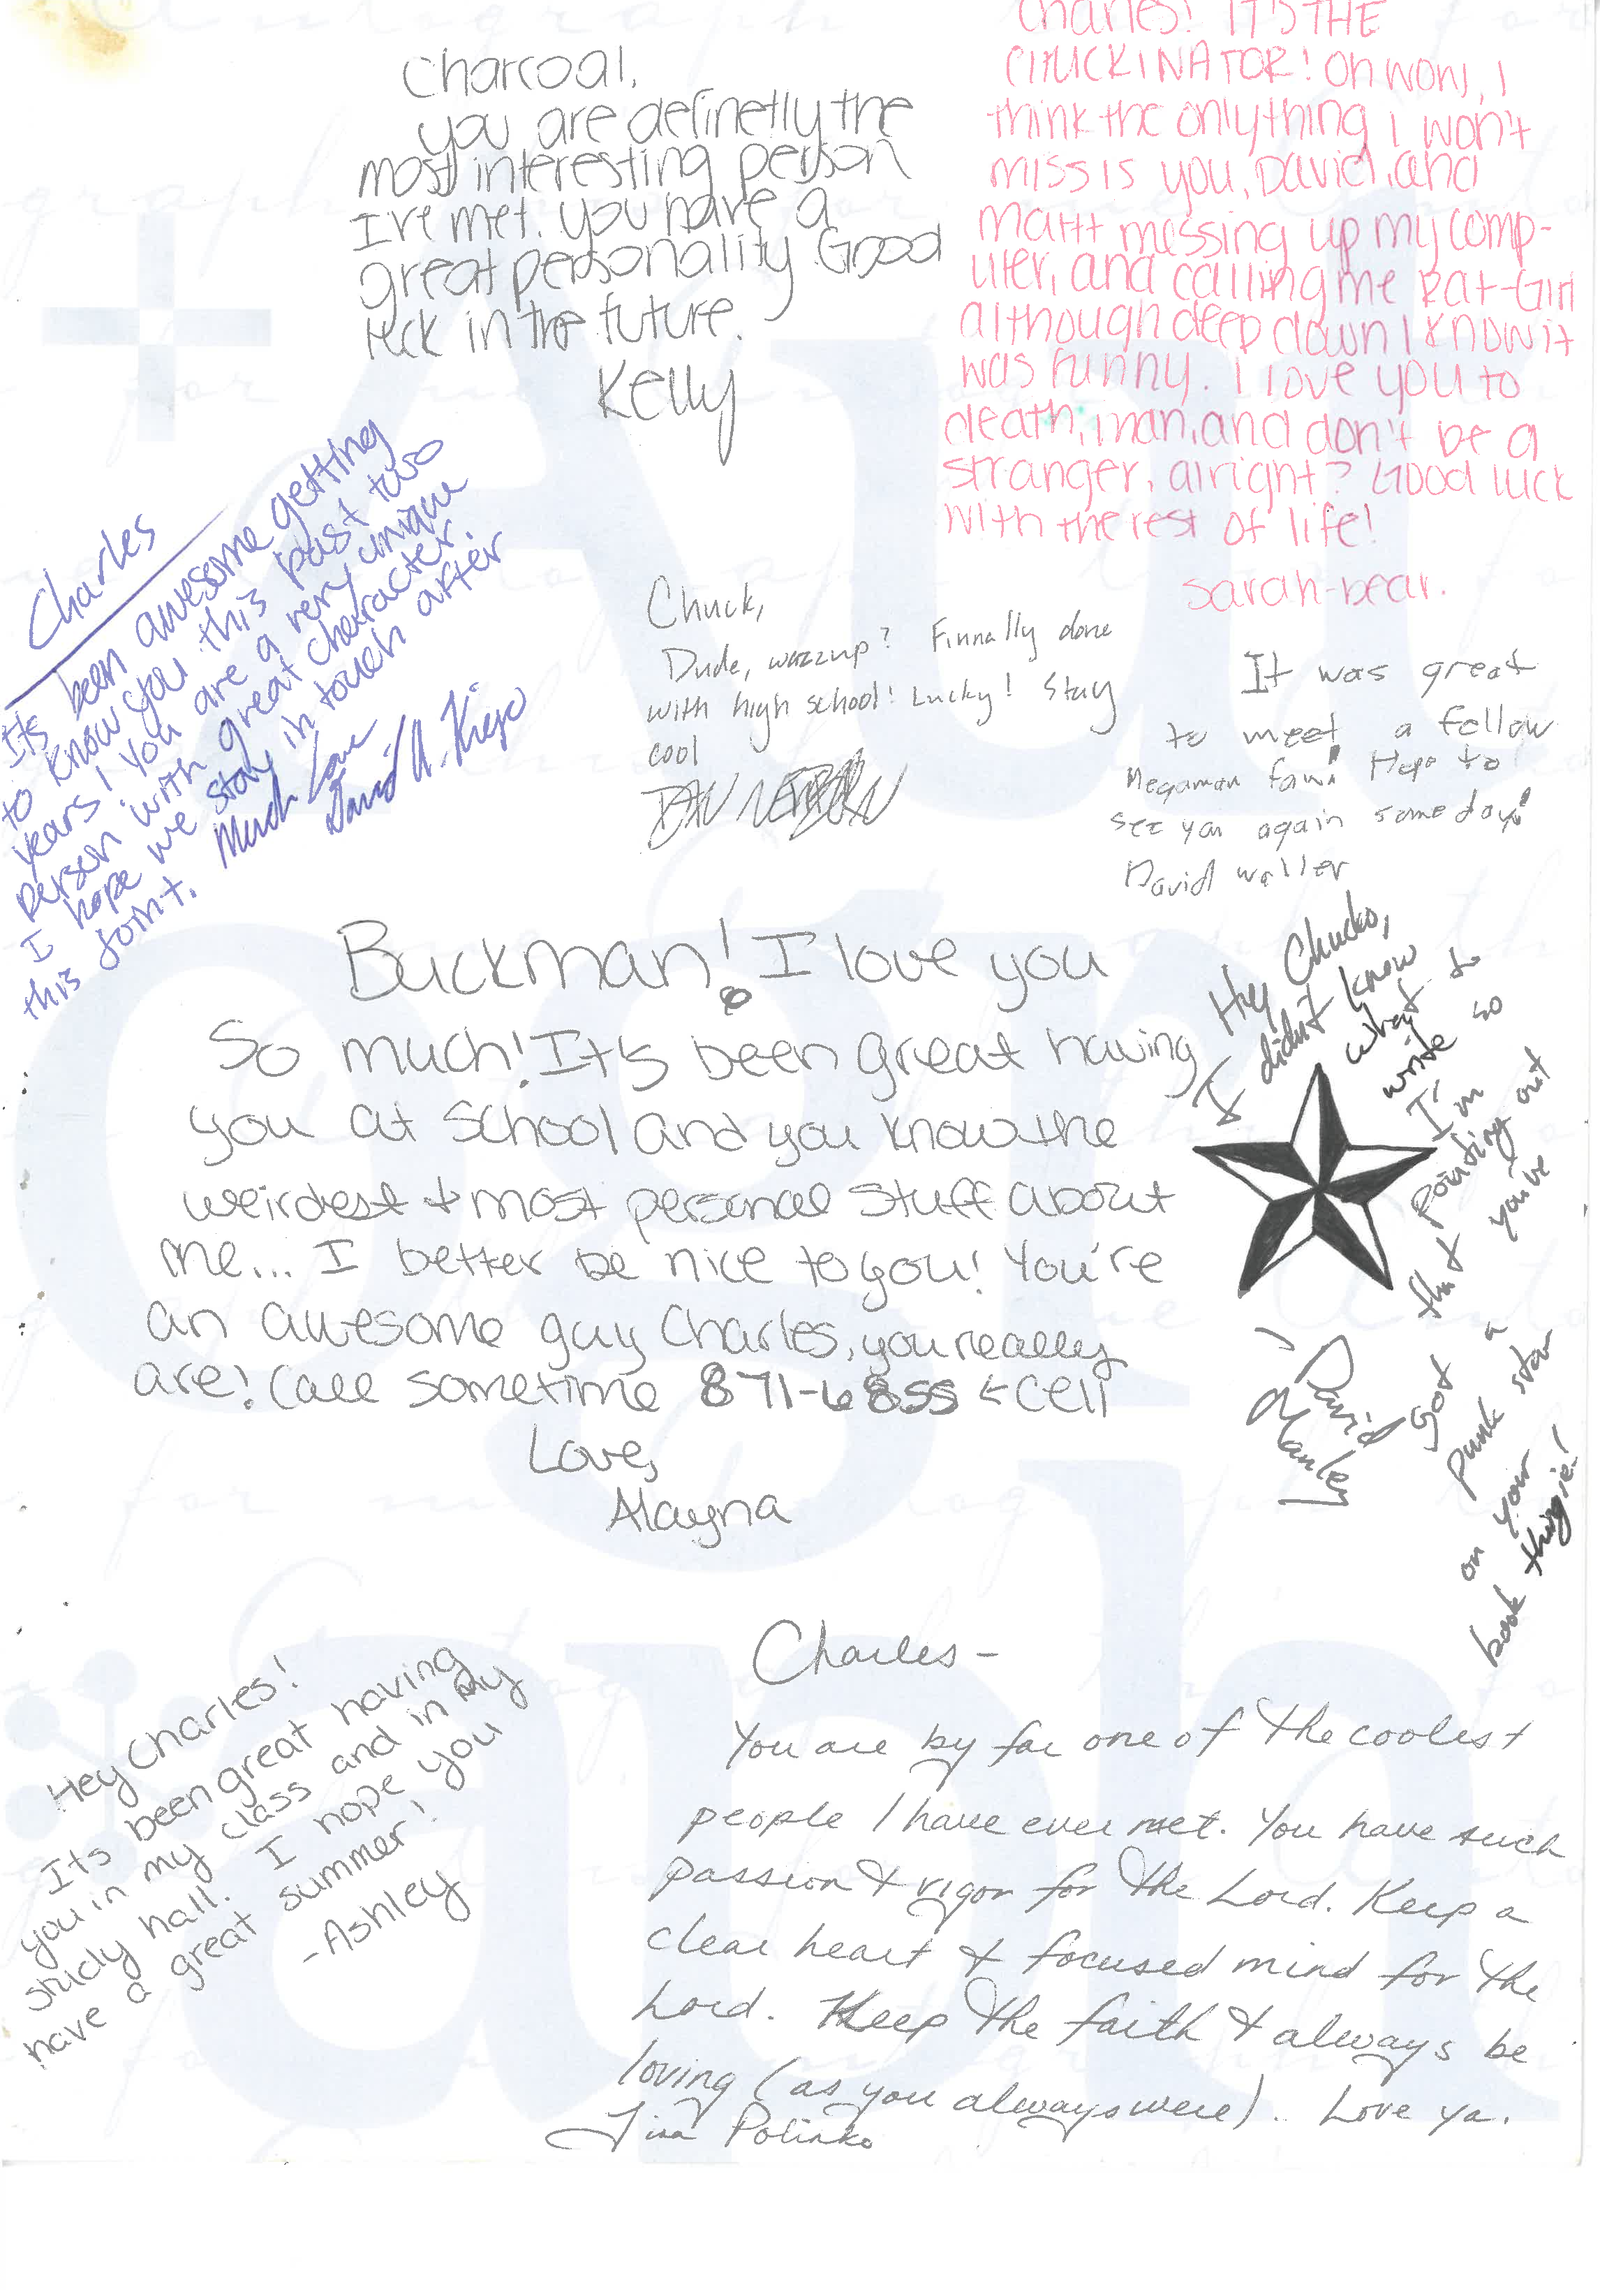 Charcoal,
you are definetly the
most interesting person
I've met. you have a
great personality Good
luck in the future.
Kelly
Charles! IT'S THE
CHUCKINATOR! Oh wow, I
think the only thing I won't
miss is you, David, and
Matt messing up my comp-
uter, and calling me Rat-Girl
although deep down I know it
was funny. I love you to
death, man, and don't be a
stranger, alright? Good luck
with the rest of life!
sarah-bear.
Charles
It's been awesome getting
to know you this past two
years! You are a very unique
person with great character.
I hope we stay in touch after
this joint.
Much Love
David A.
Chuck,
Dude, wazzup? Finnally done
with high school! Lucky! Stay
cool
It was great
to meet a fellow
Megaman fan! Hope to
see you again someday!
David Waller
Buckman! I love you
So much! It's been great having
you at school and you know the
weirdest & most personal stuff about
me... I better be nice to you! You're
an awesome guy Charles, you really
are! Call sometime 871-6855 ← cell
Love,
Alayna
Hey Chucko,
I didn't know
what to
write so
I'm
pointing out
that you've
got a
punk star
on your
book thingie!
- David
Manley
Hey Charles!
Its been great having
you in my class and in my
study hall. I hope you
have a great summer!
-Ashley
Charles -
You are by far one of the coolest
people I have ever met. You have such
passion & vigor for the Lord. Keep a
clear heart & focused mind for the
Lord. Keep the faith & always be
loving (as you always were). Love ya.
Tina Polinko